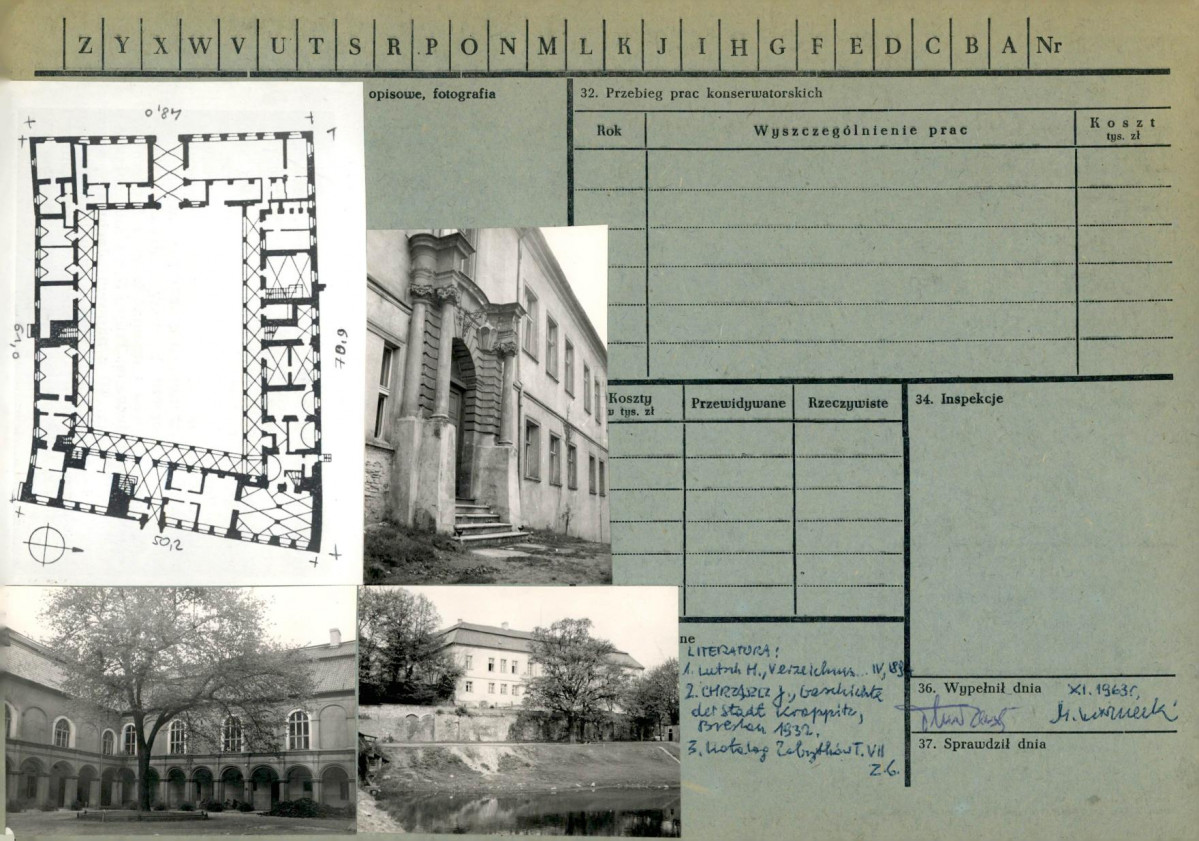 Z Y X W V U T S R P O N M L K J I H G F E D C B A Nr
opisowe, fotografia
32. Przebieg prac konserwatorskich
Rok
Wyszczególnienie prac
Koszt
tys. zł
48,0
61,0
78,9
50,2
Koszty
w tys. zł
Przewidywane
Rzeczywiste
34. Inspekcje
ne
LITERATURA:
1. Lutsch H., Verzeichnis... IV, 189
2. CHRZĄSZCZ J., Geschichte
der Stadt Krappitz,
Breslau 1932.
3. Katalog Zabytków T. VII
Z.6.
36. Wypełnił dnia
XI. 1963r,
37. Sprawdził dnia